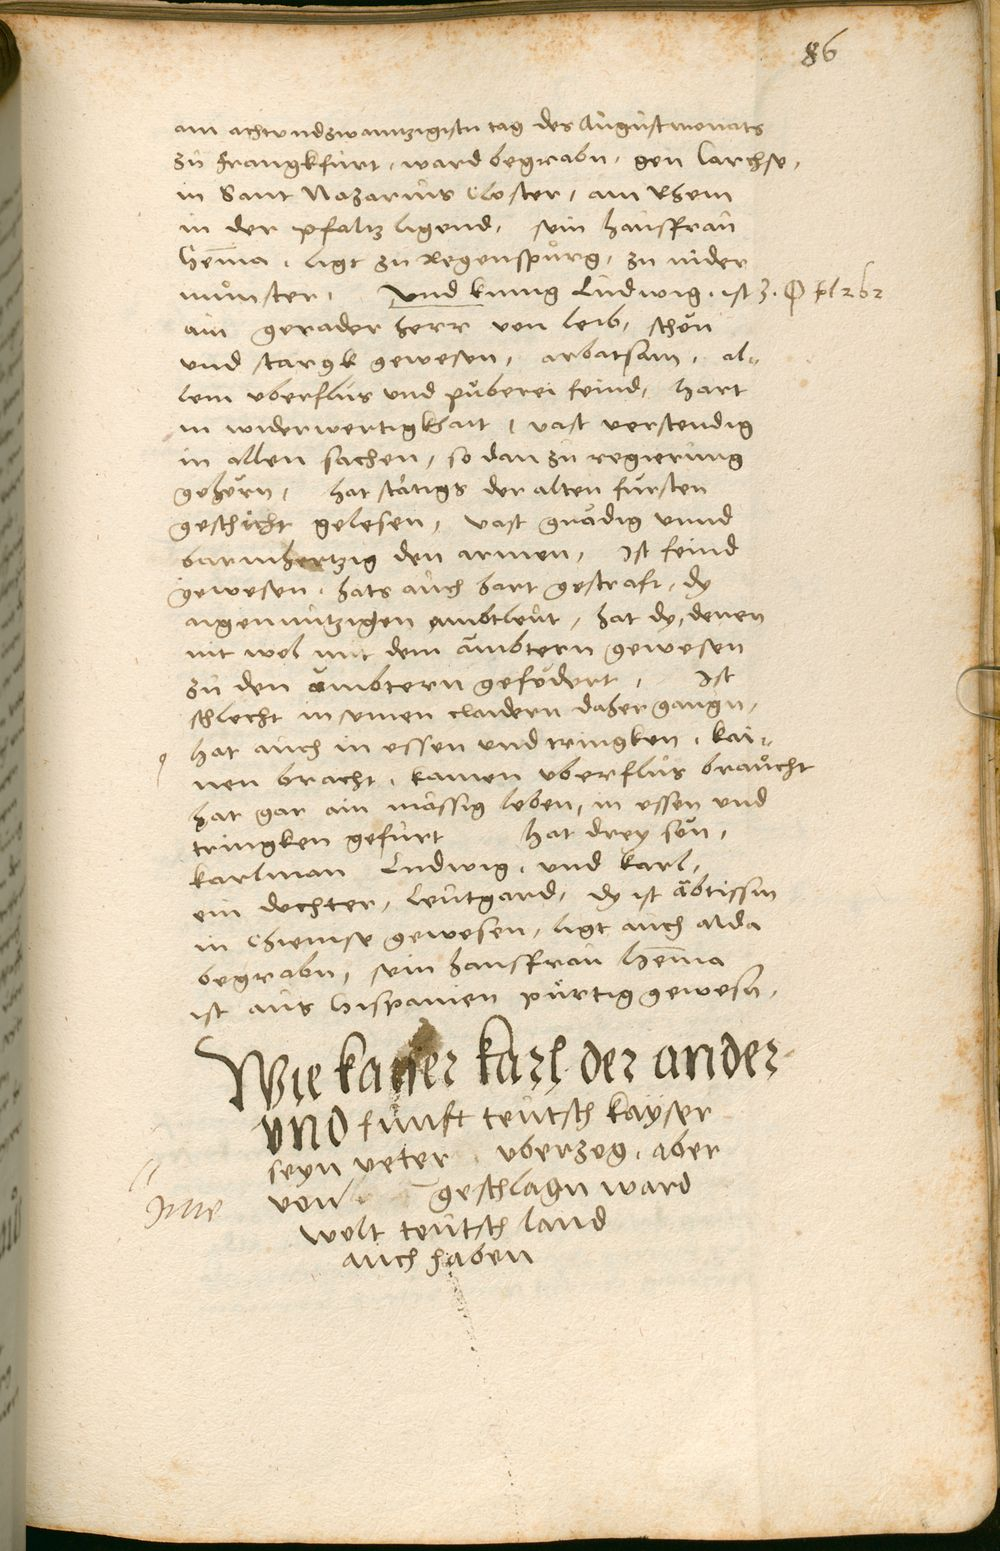 86
am achtundzwaintzigistn tag des Augustmonats
zu Frangkfurt, ward begrabn, gen Larchse,
in Sant Nazarius Closter, am Rhein
in der pfaltz ligend, sein hausfrau
Hemma, ligt zu Regenspurg, zu nider
munster, Und kunig Ludwig, ist
ain gerader herr von leib, schön
und stargk gewesen, arbatsam, al-
lem uberflus und püberei feind, hart
in widerwertigkhait, vast verstendig
in allen sachen, so dan zu regierung
gehörn, hat stätigs der alten fursten
geschicht gelesen, vast gnädig unnd
barmhertzig den armen, Ist feind
gewesen, hats auch hart gestraft, dy
aigennutzigen ambtleut, hat dy, denen
nit wol mit dem ämbtern gewesen
zu den ämbtern gefödert, Ist
schlecht in seinen claidern daher gangn,
hat auch in essen und tringken, kai-
nen bracht, kainen uberflus braucht
hat gar ain mässig leben, in essen und
tringken gefurt hat drey sön,
karlman Ludwig, und karl,
ein dochter, leutgard, dy ist äbtissin
in Chiemse gewesen, ligt auch alda
begrabn, sein hausfrau Hemma
ist aus Hispanien pürtig gewesn,
Wie kayser karl der ander
und funft teutsch kayser
seyn veter uberzog, aber
von geschlagn ward
wolt teutsch land
auch haben